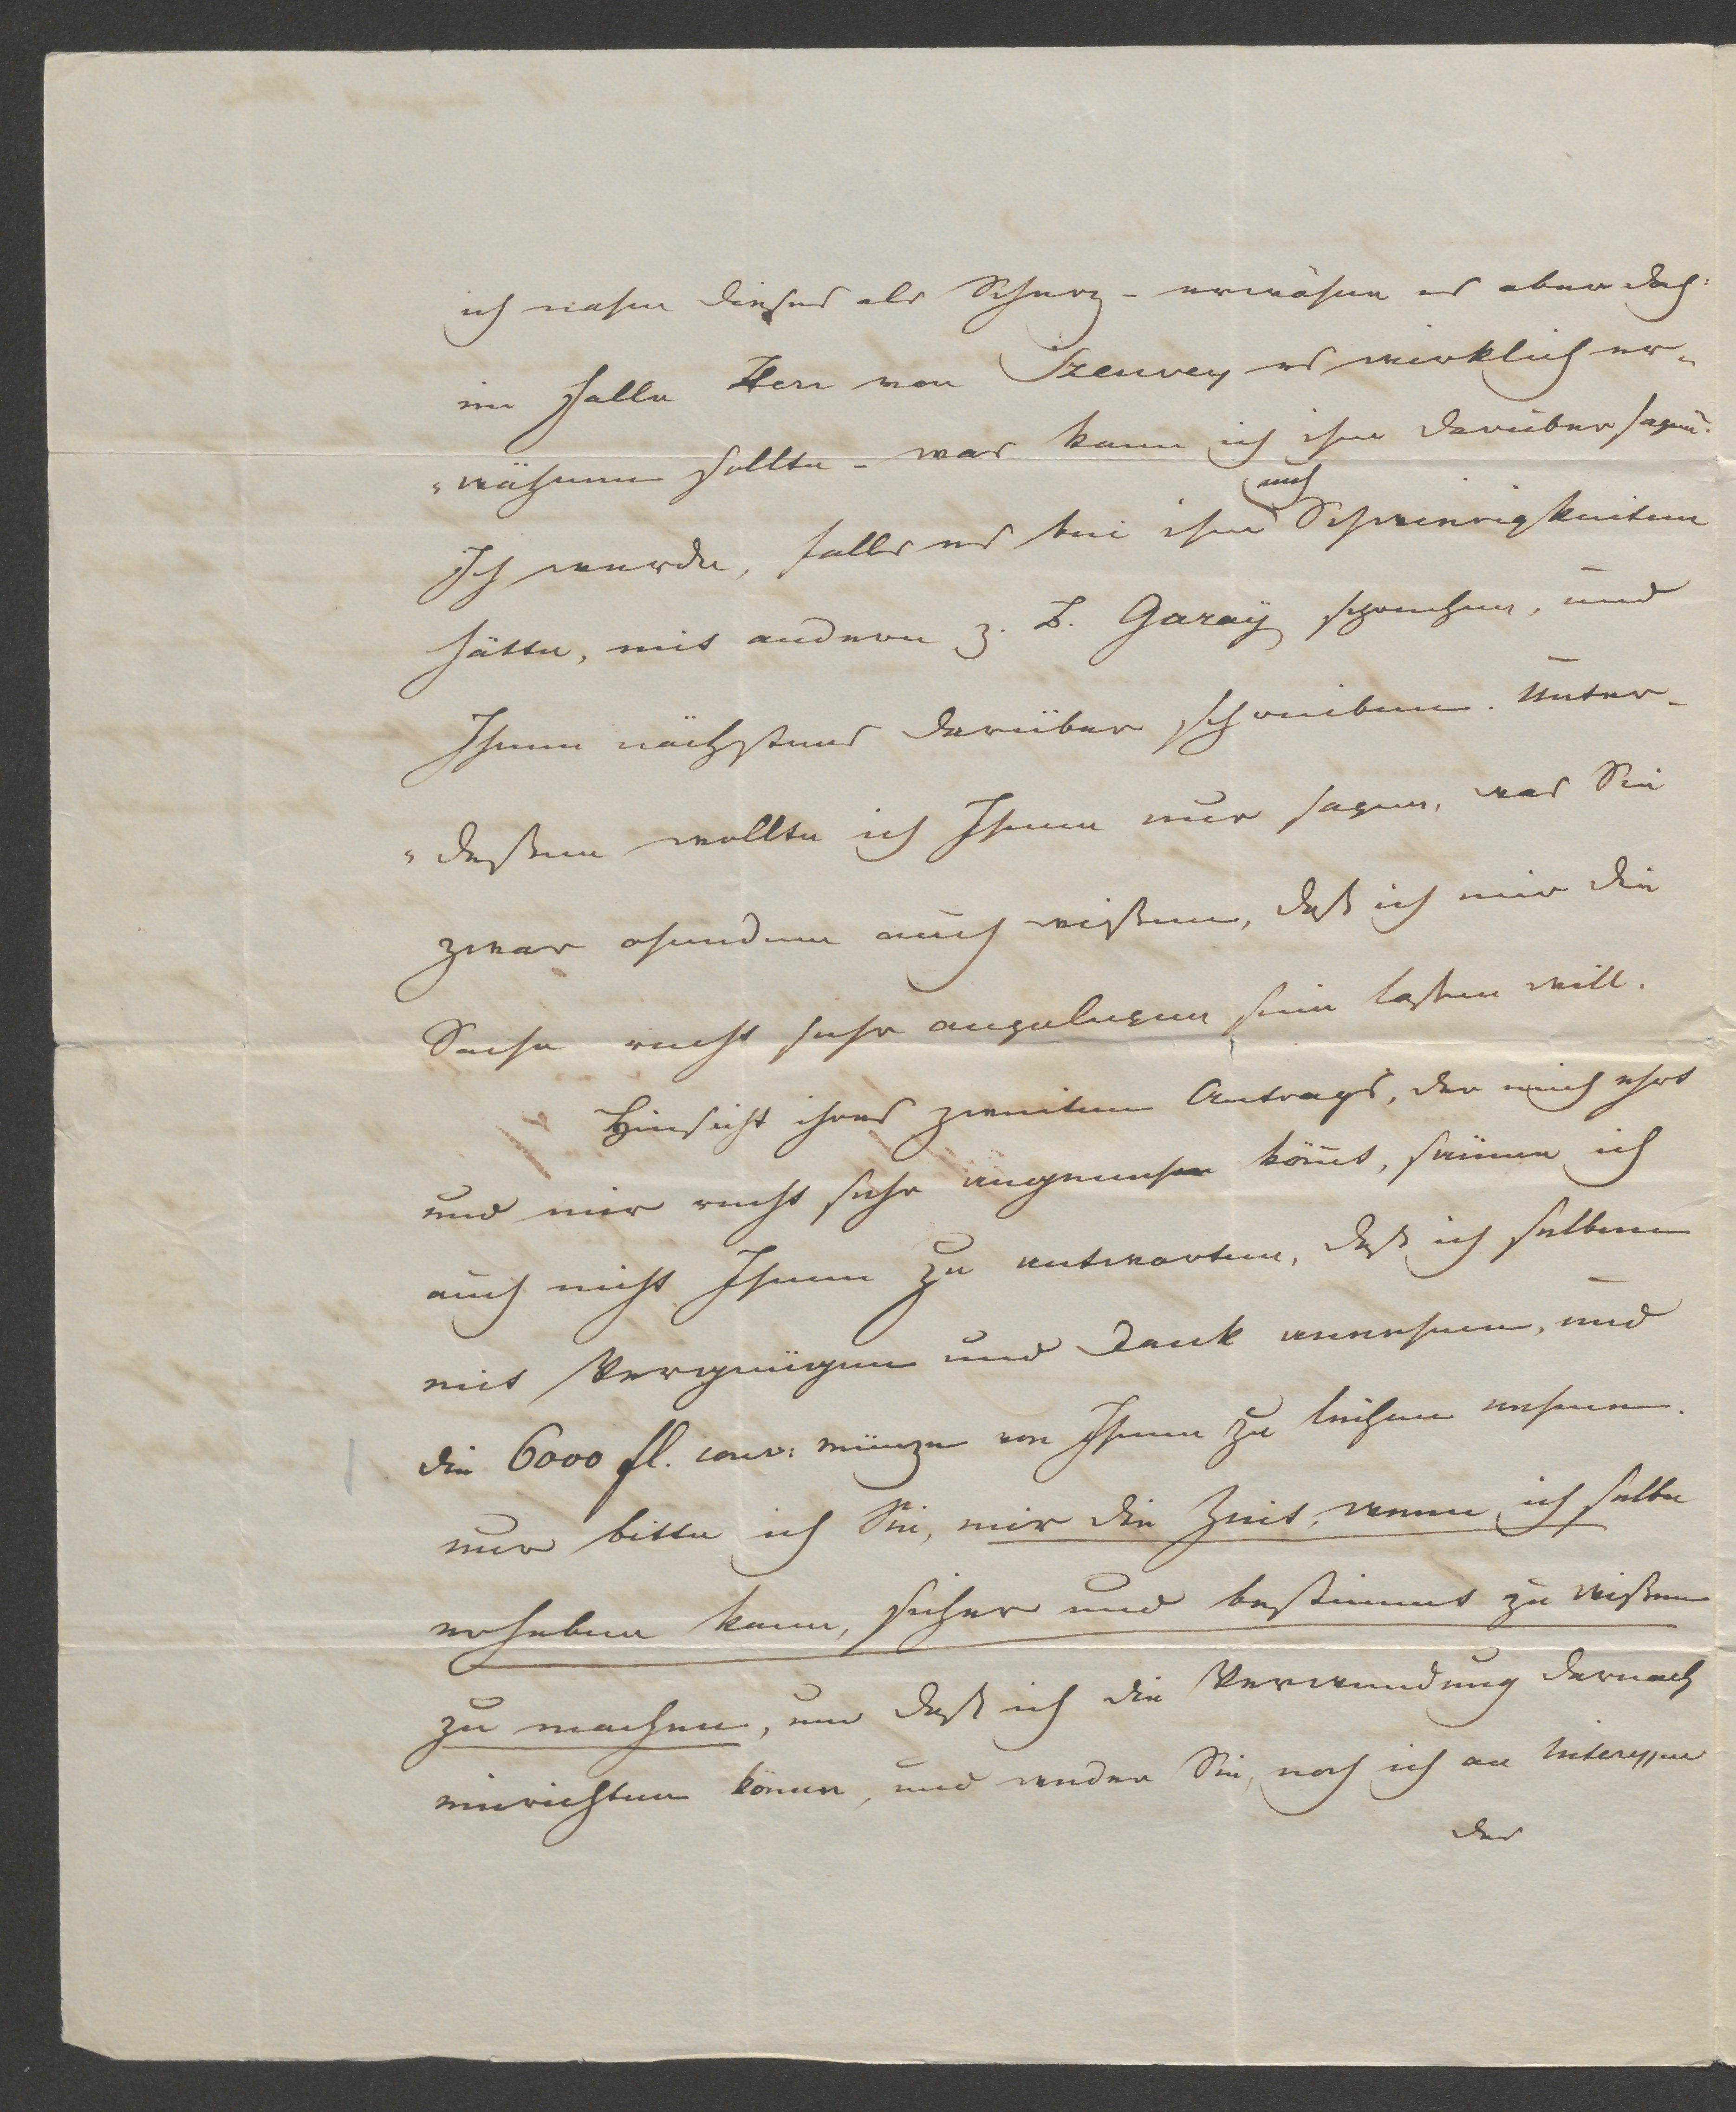 ich nahm dieses als Scherz - erwähne es aber doch:
im Falle Herr von Szenvey es wirklich er-
„wähnen sollte - was kann ich ihm darüber sagen.
Ich werde, falls es bei ihm auch Schwierigkeiten
hätte, mit andern z. B. Garaÿ sprechen, und
Ihnen nächstens darüber schreiben. Unter-
„deßen wollte ich Ihnen nur sagen, was Sie
zwar ohendem auch wißen, daß ich mir die
Sache recht sehr angelegen sein laßen will.
Hinsicht ihres zweiten Antrags, der mich ehrt
und mir recht sehr angenehm köm̅t, säume ich
auch nicht Ihnen zu antworten, daß ich selben
mit Vergnügen und Dank annehme, und
die 6000 fl. conv: münze von Ihnen zu leihen nehme.
nur bitte ich Sie, mir die Zeit, wenn ich selbe
erheben kann, sicher und bestimmt zu wißen
zu machen, um daß ich die Verwendung darnach
einrichten könne, und weder Sie, noch ich an Interessen
der